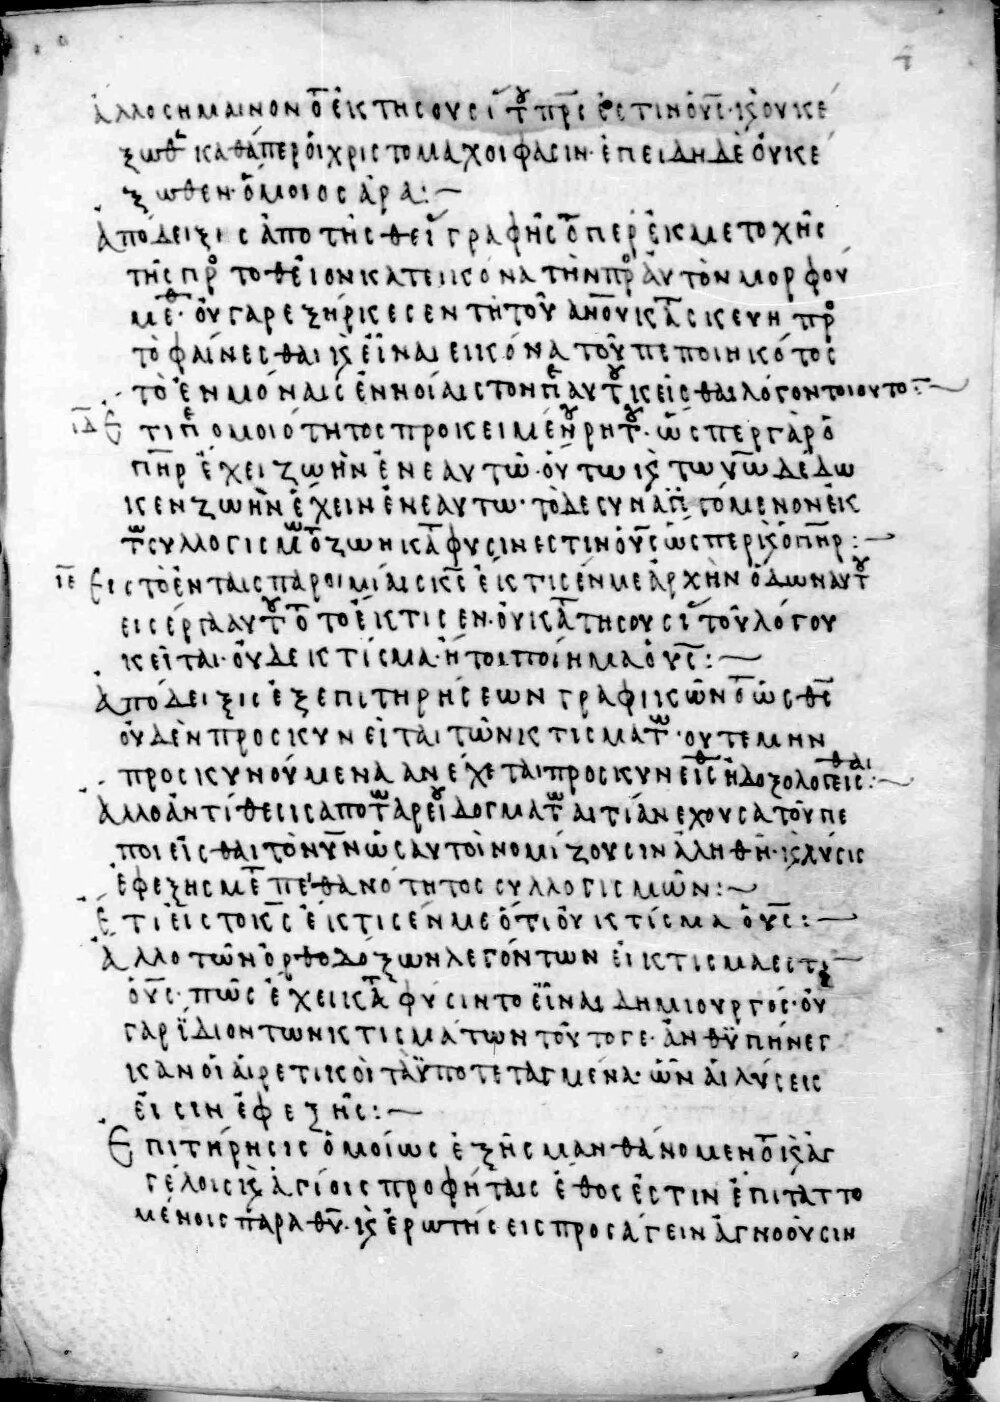 ἄλλο σημαῖνον ὅτι ἐκ τῆς οὐσί τοῦ πρς ἐστιν ὁ υς· κ οὐκ ἔ
ξωθ καθάπερ οἱ χριστομάχοι φασιν· ἐπειδὴ δὲ οὐκ ἔ
ξωθεν· ὅμοιος ἄρα:—
ἀπόδειξις ἀπὸ τῆς θεί γραφῆς ὅπερ ἐκ μετοχῆς
τῆς πρ τὸ θεῖον κατ εἰκόνα τὴν πρ αὐτὸν μορφου
μεθ· οὐ γὰρ ἐξήρκεσεν τῇ τοῦ ανου κατασκευη πρ
τὸ φαίνεσθαι κ εἶναι εἰκόνα τοῦ πεποιηκότος
τὸ ἐν μόναις ἐννοίαις τον π αὐτοῦ κεῖσθαι λόγον τοιοῦτο:—
ιδ ετι π ὁμοιότητος προκειμένου ρητοῦ· ὥσπερ γὰρ ὁ
πηρ ἔχει ζωὴν ἐν ἑαυτῶ· οὕτω κ τω υω δέδω
κεν ζωὴν ἔχειν ἐν ἑαυτω· τὸ δὲ συναπτόμενον εἰς
τῶν συλλογισμων ὅτι ζωὴ κατα φύσιν ἐστιν ὁ υς ὥσπερ κ ὁ πηρ:—
ιε εἰς τὸ ἐν ταῖς παροιμίαις κς ἔκτισέν με ἀρχὴν ὁδῶν αὐτοῦ
εἰς ἔργα αὐτοῦ ὅτι τὸ ἔκτισεν· οὐ κατα τῆς οὐσί τοῦ λόγου
κεῖται· οὐδὲ κτίσμα· ἤτοι ποίημα ὁ υς:—
ἀπόδειξις ἐξ ἐπιτηρήσεων γραφικῶν ὅτι ὡς θς
οὐδὲν προσκυνεῖται τῶν κτισμάτων· οὔτε μην
προσκυνούμενα ἀνέχεται προσκυνεῖσθ ἢ δοξολογεῖσθαι:—
ἄλλο ἀντίθεσις απο τῶν ἀρεί δογμάτων αἰτίαν εχουσα τοῦ πε
ποιεῖσθαι τὸν υν ὡς αὐτοὶ νομίζουσιν ἀληθῆ· κ λύσις
ἐφεξῆς μετ πειθανότητος συλλογισμῶν:—
ἔτι εἰς το κς ἔκτισέν με ὅτι οὐ κτίσμα ὁ υς:—
ἄλλο τῶν ὀρθοδόξων λεγόντων εἰ κτίσμα εστι
ὁ υς· πῶς ἔχει κατα φύσιν το εἶναι δημιουργός· οὐ
γαρ ἴδιον τῶν κτισμάτων τοῦτο γε· ἀνθυπήνεγ
καν οἱ αἱρετικοὶ τὰ ὑποτεταγμένα· ὧν αἱ λύσεις
εἰσιν ἐφεξῆς:—
Επιτήρησις ὁμοίως ἐξ ἧς μανθάνομεν ὅτι κ ἀγ
γέλοις κ ἁγίοις προφήταις ἔθος ἐστιν ἐπιταττο
μένοις παρα θυ· κ ἐρωτήσεις προσάγειν ἀγνοοῦσιν